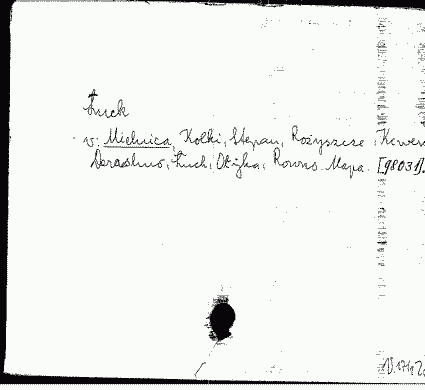 Łuck
v: Mielnica, Kołki, Stepan, Rożyszcze, Kewer
Derażno, Łuck, Ołyka, Rowno. Mapa. [98031].